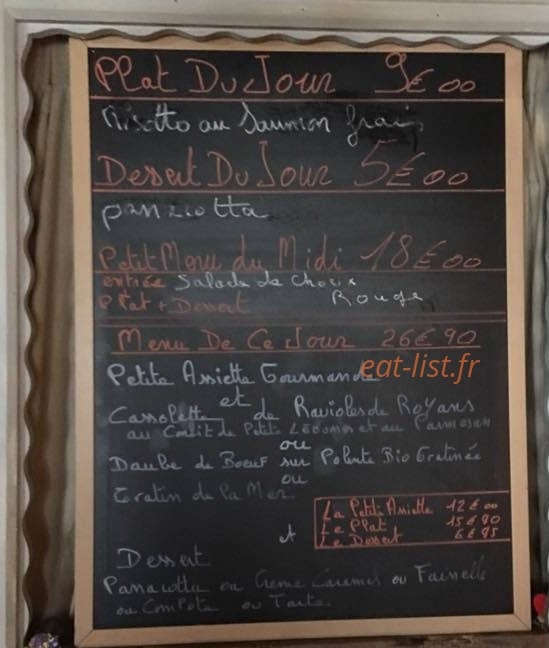 Plat Du Jour 9€00
Risotto au Saumon frais
Dessert Du Jour 5€00
pannacotta
Petit Menu du Midi 18€00
entrée Salade de Choux
Plat + Dessert Rouge
Menu De Ce Jour 26€90
eat-list.fr
Petite Assiette Gourmande
et
Cassolette de Ravioles de Royans
au Confit de Petits Légumes et au Parmesan
ou
Daube de Boeuf sur Polente Bio Gratinée
ou
Gratin de la Mer
La Petite Assiette 12€00
Le Plat 15€90
Le Dessert 6€95
et
Dessert
Panacotta ou Crème Caramel ou Faisselle
ou Compote ou Tarte